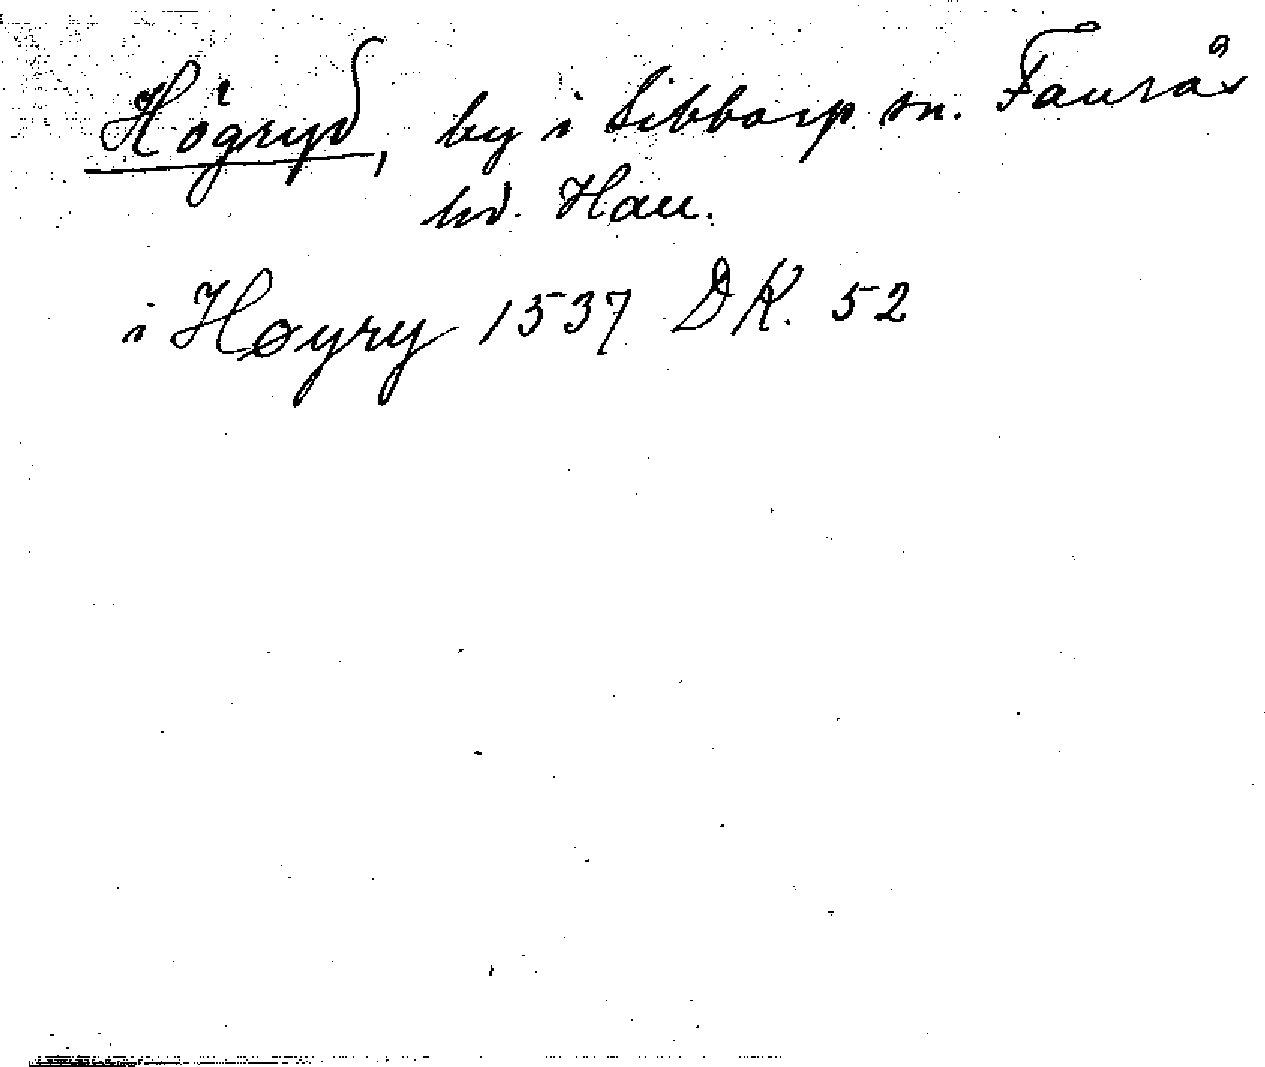 Högryd, by i Sibbarp sn. Faurås
hd. Hall.
i Høyry 1537 DK. 52